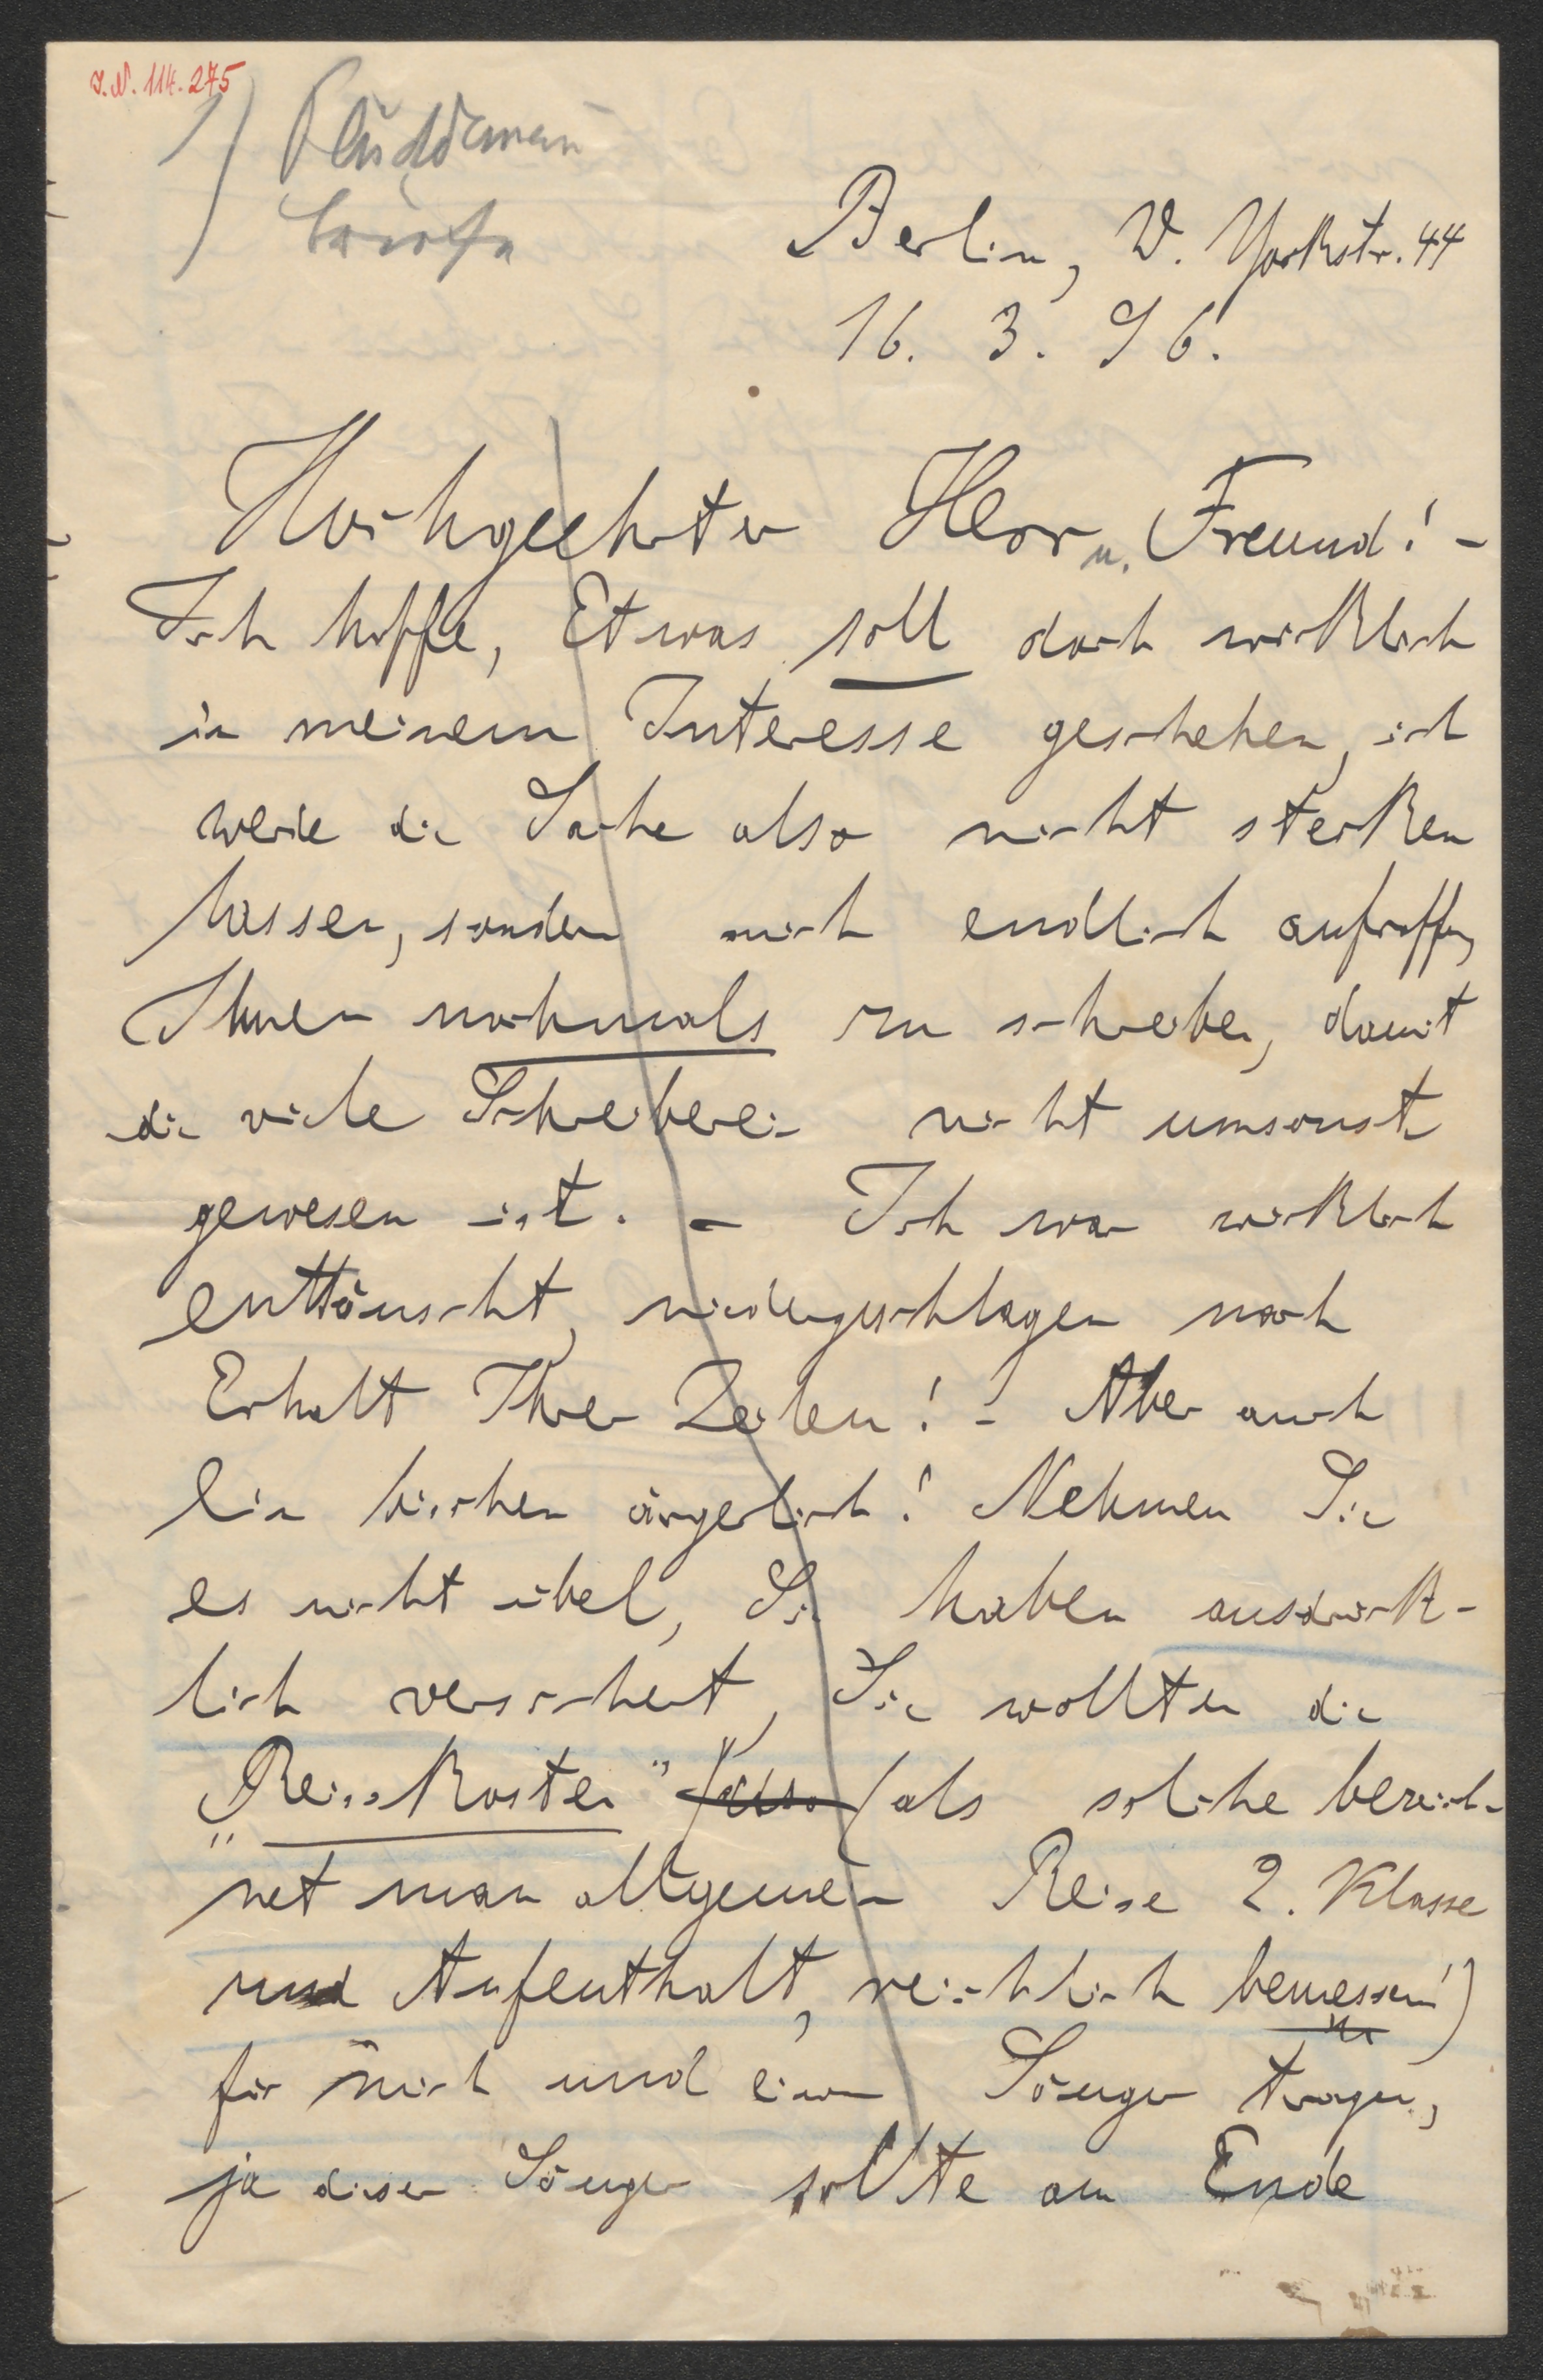 I.N. 114.275
1) Plüddemann
Berlin, W. Yorkstr. 44
16. 3. 96.
Hochgeehrter Herr u. Freund! -
Ich hoffe, Etwas soll doch wirklich
in meinem Interesse geschehen, ich
werde die Sache also nicht stecken
lassen, sondern mich endlich aufraffen,
Ihnen nochmals zu schreiben, damit
die viele Schreiberei nicht umsonst
gewesen ist. - Ich war wirklich
enttäuscht, niedergeschlagen nach
Erhalt Ihrer Zeilen! - Aber auch
ein bischen ärgerlich! Nehmen Sie
es nicht übel, Sie haben ausdrück-
lich versichert, Sie wollten die
„Reisekosten" (also (als solche bezeich-
net man allgemein Reise 2. Klasse
und Aufenthalt, reichlich bemessen!)
für mich und einen Sänger tragen,
ja dieser Sänger sollte am Ende